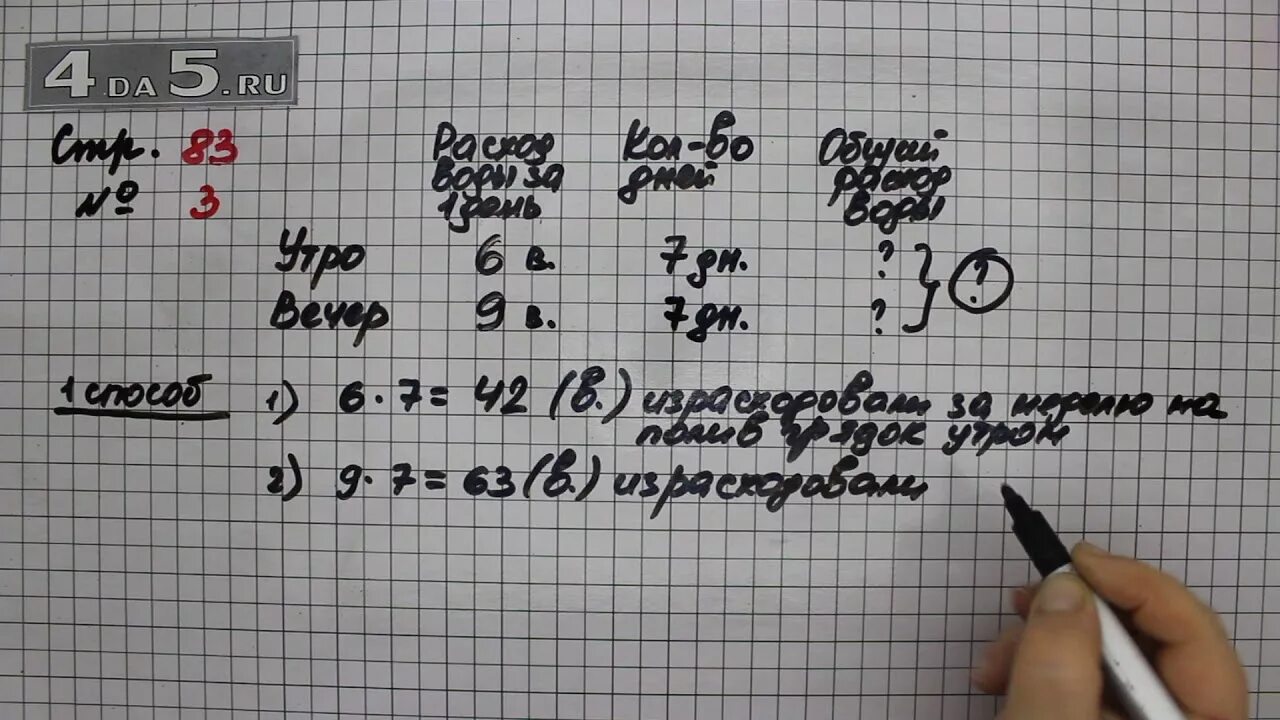 4DA5.RU
Стр. 83
№ 3
Расход воды за 1 день
Кол-во дней
Общий расход воды
Утро 6 в. 7 дн. ?
Вечер 9 в. 7 дн. ?
?
1 способ
1) 6 · 7 = 42 (в.) израсходовали за неделю на
полив грядок утром
2) 9 · 7 = 63 (в.) израсходовали